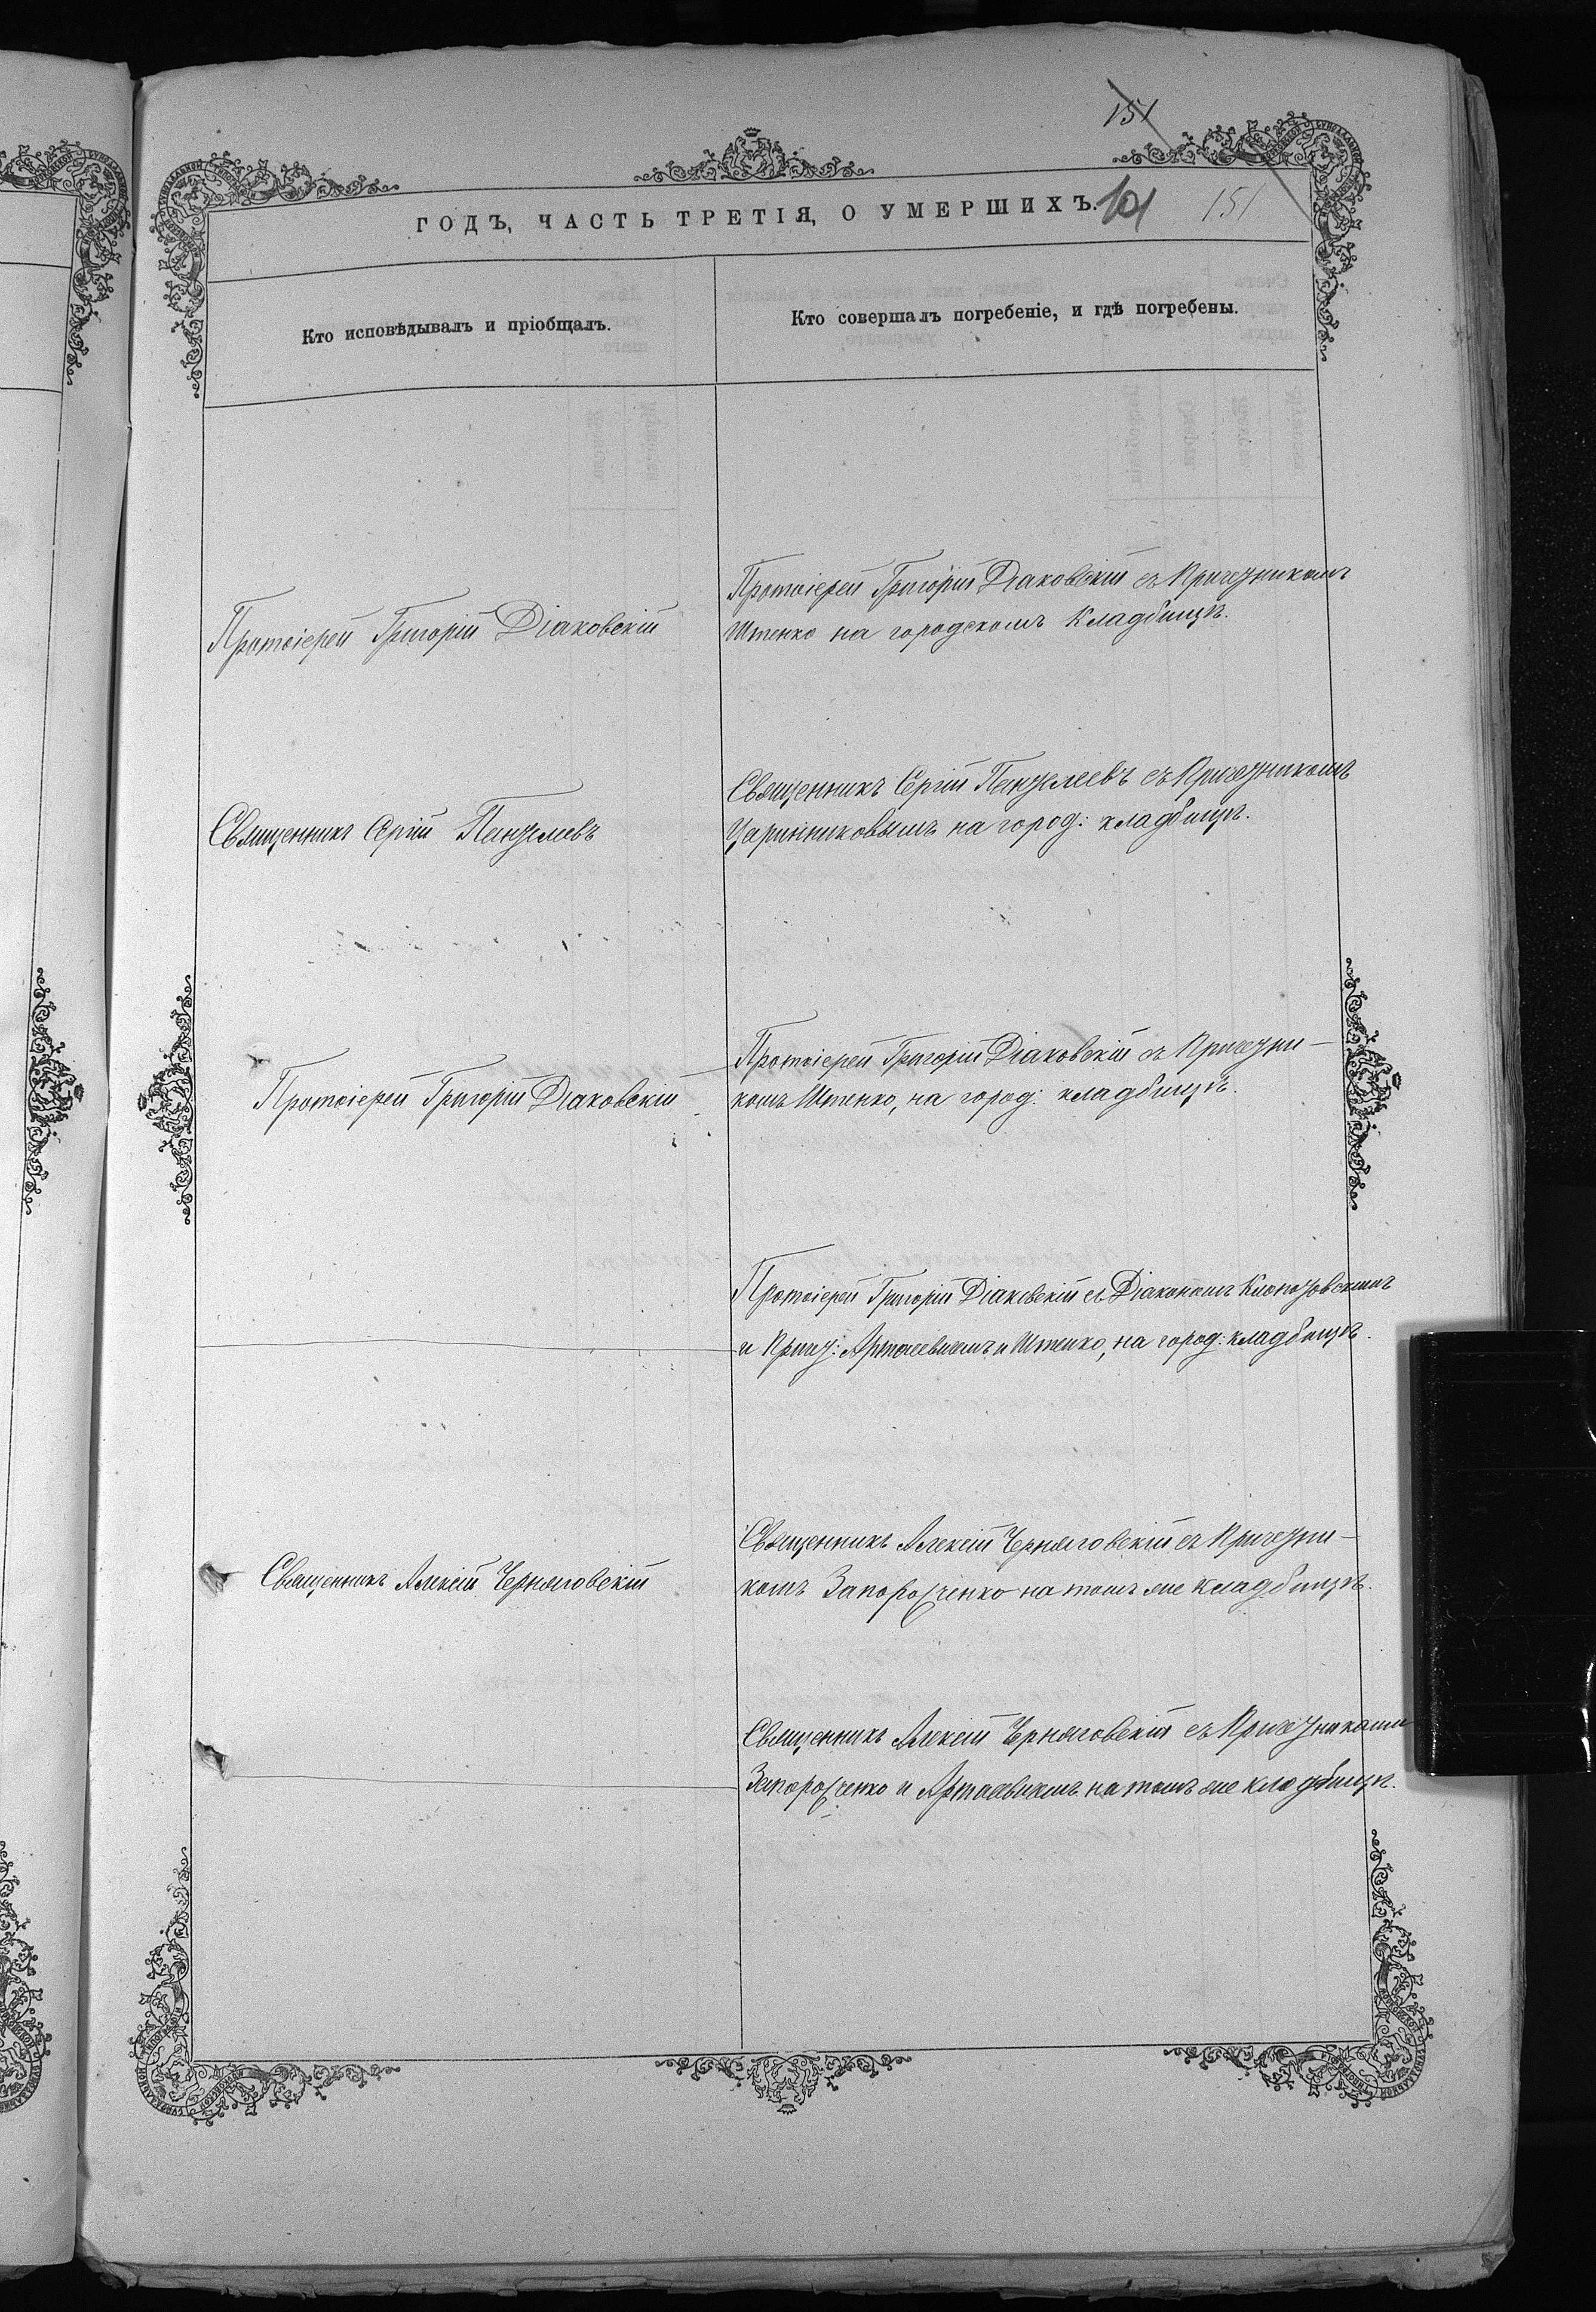 151
ГОДЪ, ЧАСТЬ ТРЕТІЯ, О УМЕРШИХЪ.
101 151
Кто исповѣдывалъ и пріобщалъ.
Кто совершалъ погребеніе, и гдѣ погребены.
Протоіерей Григорій Діаковскій
Протоіерей Григорій Діаковскій съ Причетникомъ
Штенко на городскомъ Кладбищѣ.
Священникъ Сергій Панзелеевъ
Священникъ Сергій Панзелеевъ съ Причетникомъ
Царинниковымъ на город: кладбищѣ.
Протоіерей Григорій Діаковскій
Протоіерей Григорій Діаковскій съ Причетни-
комъ Штенко, на город: кладбищѣ.
Протоіерей Григорій Діаковскій съ Діакономъ
и Прич: и Штенко, на город: кладбищѣ.
Священникъ Алексій Черняговскій
Священникъ Алексій Черняговскій съ Причетни-
комъ Запорожченко на томъ же кладбищѣ.
Священникъ Алексій Черняговскій съ Причетниками
Запорожченко и на томъ же кладбищѣ.